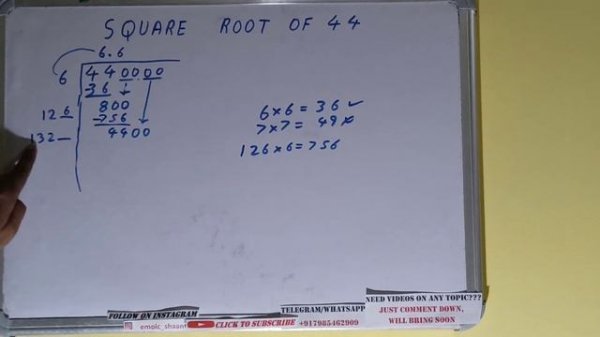 SQUARE ROOT OF 44
6.6
6 44 00 00
36
800
12 6 -756
132_ 4400
6×6=36 ✓
7×7=49 ×
126×6=756
FOLLOW ON INSTAGRAM
CLICK TO SUBSCRIBE
TELEGRAM/WHATSAPP
+917985462909
NEED VIDEOS ON ANY TOPIC???
JUST COMMENT DOWN,
WILL BRING SOON